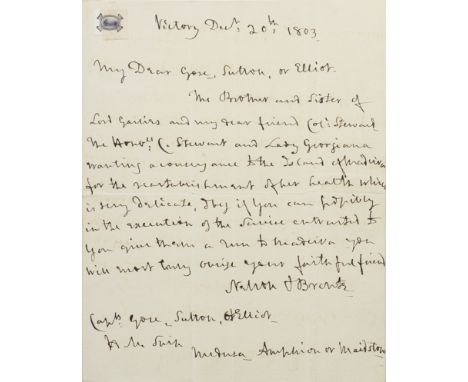 Victory Decr. 20th. 1803.
My Dear Gore, Sutton, or Elliot.
The Brother and Sister of
Lord Garlies and my dear friend Col: Stewart
The Honble. C. Stewart and Lady Georgiana
wanting a conveyance to the Island of Madeira
for the reestablishment of her health which
is very delicate, I beg if you can possibly
in the execution of the service entrusted to
you give them a run to Madeira you
will most truly oblige your faithful friend
Nelson & Bronte
Capts. Gore, Sutton, & Elliot
Medusa Amphion or Maidstone